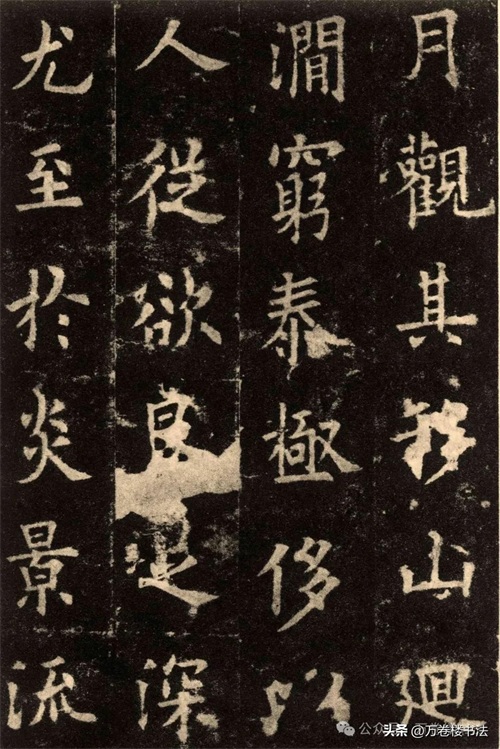 月觀其移山廻
澗窮泰極侈以
人從欲良足深
尤至於炎景流
头条 @万卷楼书法